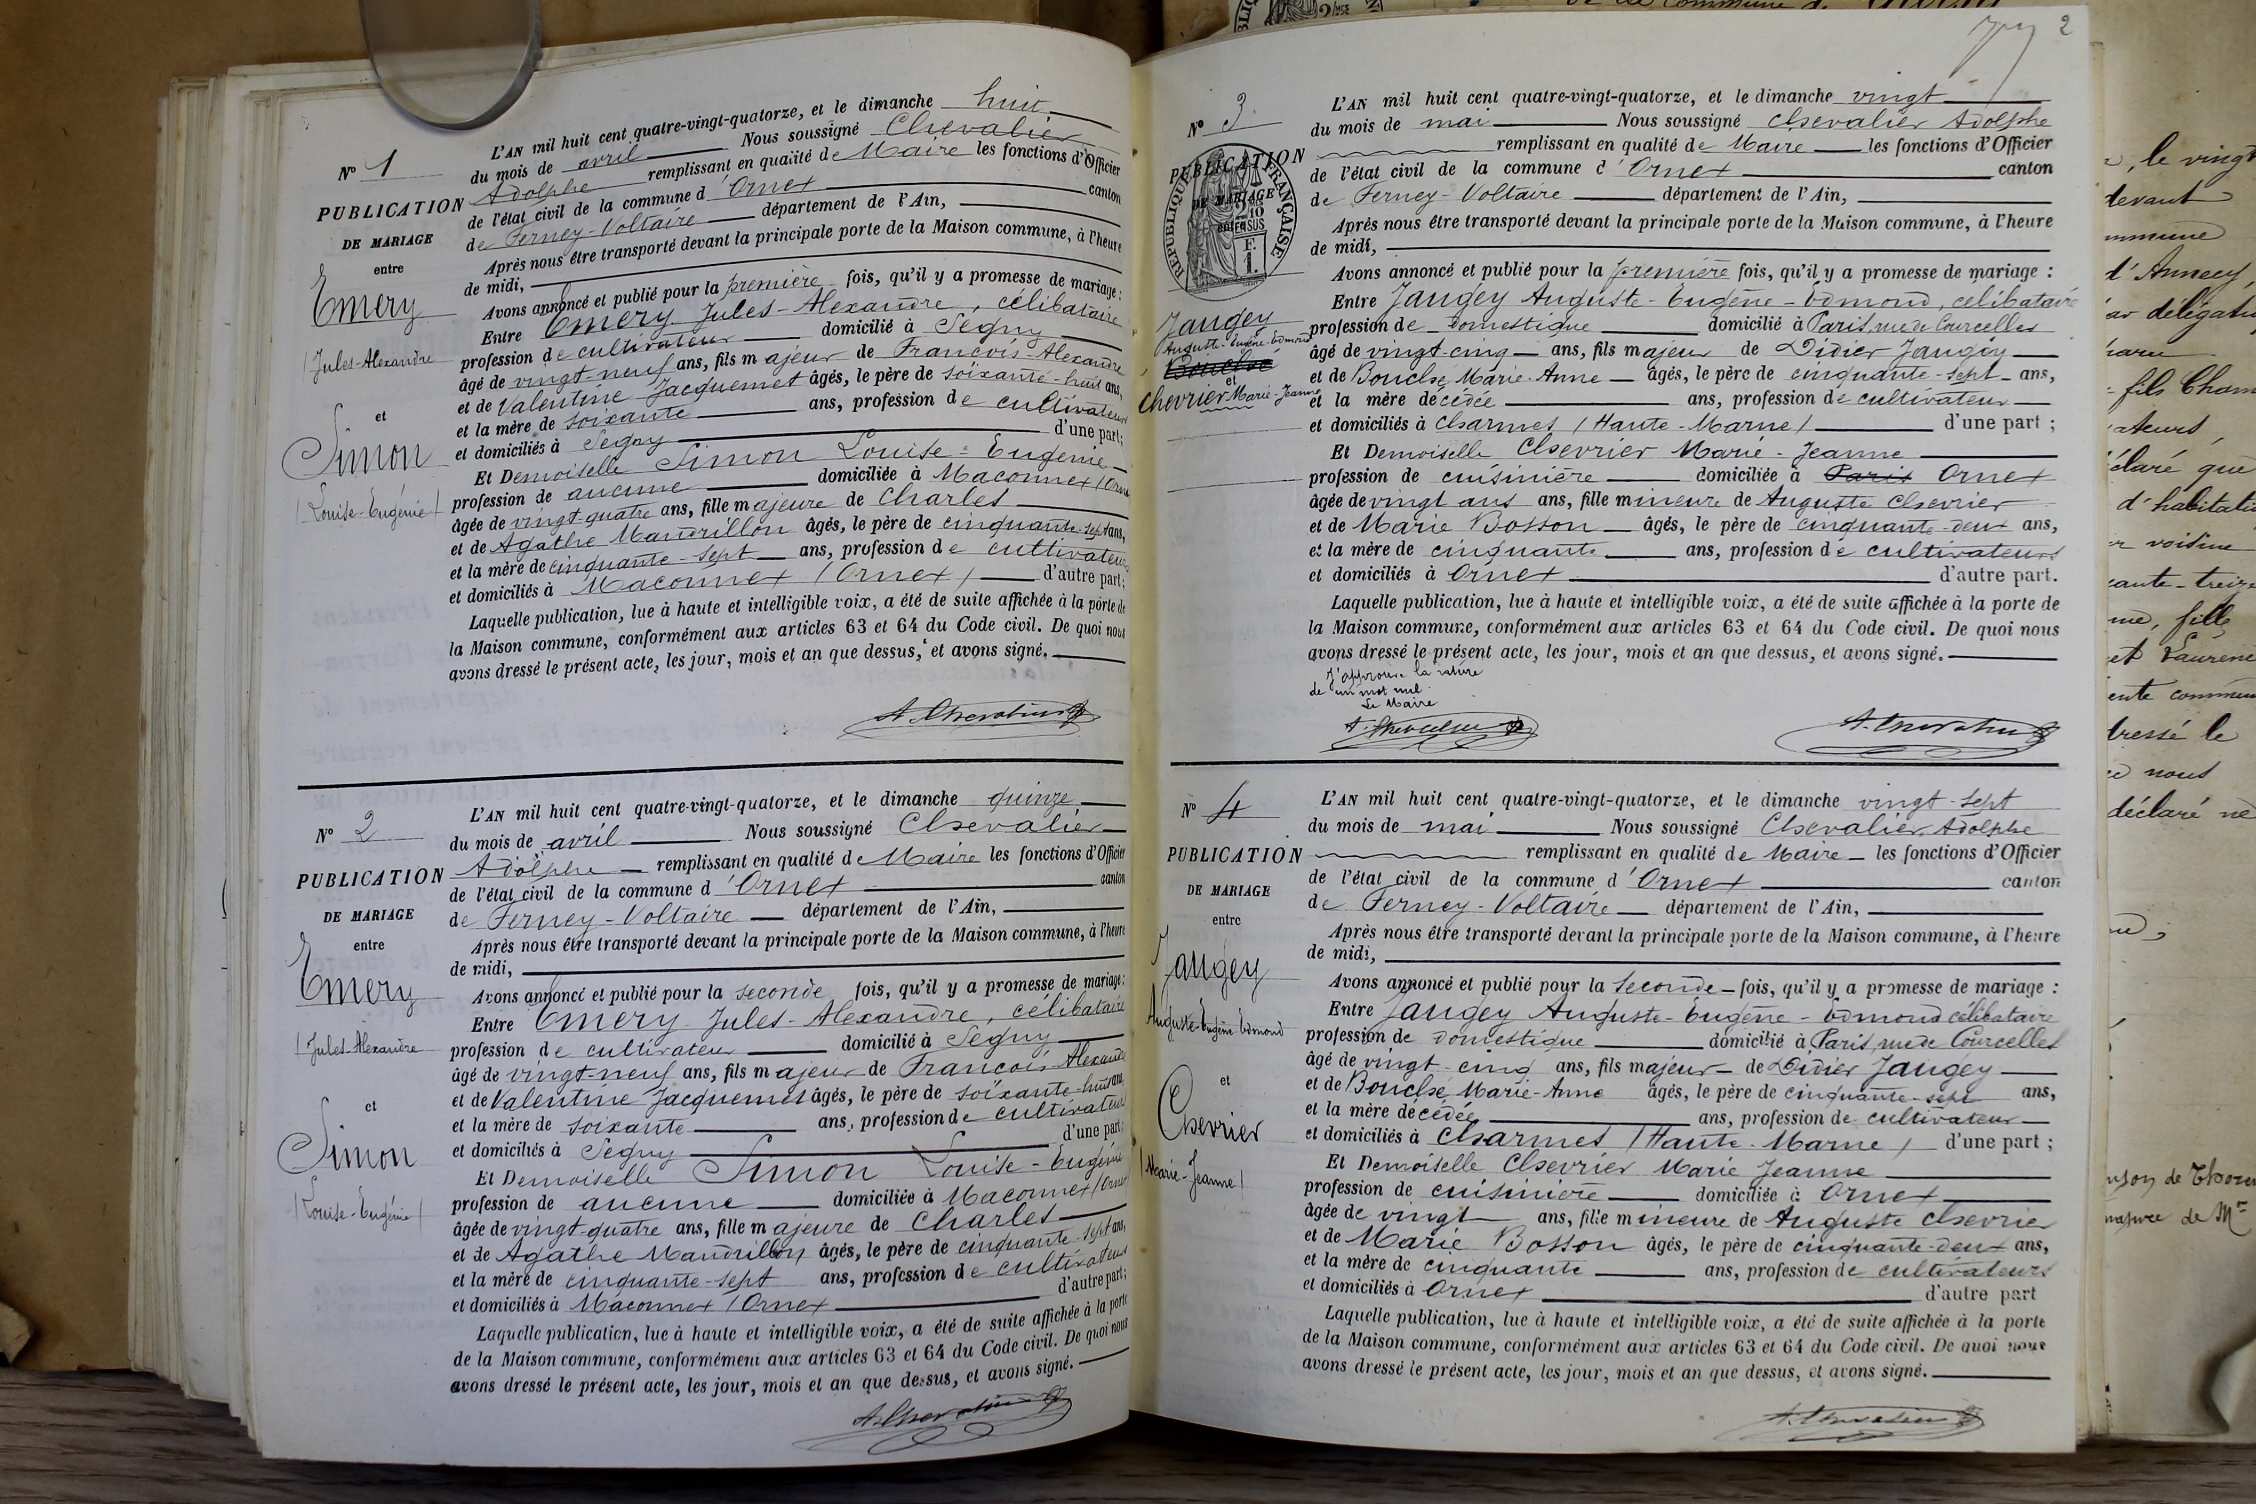 L'AN mil huit cent quatre-vingt-quatorze, et le dimanche huit
du mois de avril Nous soussigné Chevalier
Nº 1
Adolphe remplissant en qualité de Maire les fonctions d'Officier
PUBLICATION
de l'état civil de la commune d'Ornex canton
DE MARIAGE
de Ferney-Voltaire département de l'Ain,
entre
Après nous être transporté devant la principale porte de la Maison commune, à l'heure
de midi,
Emery
Avons annoncé et publié pour la première fois, qu'il y a promesse de mariage :
Entre Emery Jules-Alexandre, célibataire
(Jules-Alexandre
profession de cultivateur domicilié à Segny
âgé de vingt-neuf ans, fils majeur de François-Alexandre
et de Valentine Jacquemet âgés, le père de soixante-huit ans,
et
et la mère de soixante ans, profession de cultivateurs
Simon
et domiciliés à Segny d'une part;
Et Demoiselle Simon Louise-Eugénie
(Louise-Eugénie)
profession de aucune domiciliée à Maconnex (Ornex
âgée de vingt-quatre ans, fille majeure de Charles
et de Agathe Mandrillon âgés, le père de cinquante-sept ans,
et la mère de cinquante-sept ans, profession de cultivateurs
et domiciliés à Maconnex (Ornex) d'autre part;
Laquelle publication, lue à haute et intelligible voix, a été de suite affichée à la porte de
la Maison commune, conformément aux articles 63 et 64 du Code civil. De quoi nous
avons dressé le présent acte, les jour, mois et an que dessus, et avons signé.
A. Chevalier
L'AN mil huit cent quatre-vingt-quatorze, et le dimanche quinze
Nº 2
du mois de avril Nous soussigné Chevalier
PUBLICATION
Adolphe remplissant en qualité de Maire les fonctions d'Officier
de l'état civil de la commune d'Ornex canton
DE MARIAGE
de Ferney-Voltaire département de l'Ain,
entre
Après nous être transporté devant la principale porte de la Maison commune, à l'heure
de midi,
Emery
Avons annoncé et publié pour la seconde fois, qu'il y a promesse de mariage :
Entre Emery Jules-Alexandre, célibataire
(Jules-Alexandre
profession de cultivateur domicilié à Segny
âgé de vingt-neuf ans, fils majeur de François Alexandre
et de Valentine Jacquemet âgés, le père de soixante-huit ans,
et
et la mère de soixante ans, profession de cultivateurs
Simon
et domiciliés à Segny d'une part;
Et Demoiselle Simon Louise-Eugénie
(Louise-Eugénie)
profession de aucune domiciliée à Maconnex (Ornex
âgée de vingt-quatre ans, fille majeure de Charles
et de Agathe Mandrillon âgés, le père de cinquante-sept ans,
et la mère de cinquante-sept ans, profession de cultivateurs
et domiciliés à Maconnex (Ornex d'autre part;
Laquelle publication, lue à haute et intelligible voix, a été de suite affichée à la porte
de la Maison commune, conformément aux articles 63 et 64 du Code civil. De quoi nous
avons dressé le présent acte, les jour, mois et an que dessus, et avons signé.
A. Chevalier
2
L'AN mil huit cent quatre-vingt-quatorze, et le dimanche vingt
Nº 3
du mois de mai Nous soussigné Chevalier Adolphe
remplissant en qualité de Maire les fonctions d'Officier
PUBLICATION
de l'état civil de la commune d'Ornex canton
DE MARIAGE
de Ferney-Voltaire département de l'Ain,
entre
RÉPUBLIQUE FRANÇAISE
2/10 EN SUS
F. 1.
Après nous être transporté devant la principale porte de la Maison commune, à l'heure
de midi,
Avons annoncé et publié pour la première fois, qu'il y a promesse de mariage :
Entre Jaugey Auguste-Eugène-Edmond, célibataire
Jaugey
Auguste-Eugène-Edmond
profession de domestique domicilié à Paris, rue de Courcelles
âgé de vingt-cinq ans, fils majeur de Didier Jaugey
Bouché
et
et de Bouché Marie-Anne âgés, le père de cinquante-sept ans,
Chevrier Marie-Jeanne
et la mère décédée ans, profession de cultivateur
et domiciliés à Charmes (Haute-Marne) d'une part ;
Et Demoiselle Chevrier Marie-Jeanne
profession de cuisinière domiciliée à Paris Ornex
âgée de vingt ans ans, fille mineure de Auguste Chevrier
et de Marie Bosson âgés, le père de cinquante-deux ans,
et la mère de cinquante ans, profession de cultivateurs
et domiciliés à Ornex d'autre part.
Laquelle publication, lue à haute et intelligible voix, a été de suite affichée à la porte de
la Maison commune, conformément aux articles 63 et 64 du Code civil. De quoi nous
avons dressé le présent acte, les jour, mois et an que dessus, et avons signé.
J'approuve la rature
de un mot nul
Le Maire
A. Chevalier
A. Chevalier
L'AN mil huit cent quatre-vingt-quatorze, et le dimanche vingt-sept
Nº 4
du mois de mai Nous soussigné Chevalier Adolphe
PUBLICATION
remplissant en qualité de Maire les fonctions d'Officier
de l'état civil de la commune d'Ornex canton
DE MARIAGE
de Ferney-Voltaire département de l'Ain,
entre
Après nous être transporté devant la principale porte de la Maison commune, à l'heure
de midi,
Jaugey
Avons annoncé et publié pour la seconde fois, qu'il y a promesse de mariage :
Entre Jaugey Auguste-Eugène-Edmond célibataire
Auguste-Eugène-Edmond
profession de domestique domicilié à Paris, rue de Courcelles
âgé de vingt-cinq ans, fils majeur de Didier Jaugey
et
et de Bouché Marie-Anne âgés, le père de cinquante-sept ans,
et la mère décédée ans, profession de cultivateur
Chevrier
et domiciliés à Charmes (Haute-Marne) d'une part ;
Et Demoiselle Chevrier Marie Jeanne
(Marie-Jeanne)
profession de cuisinière domiciliée à Ornex
âgée de vingt ans, fille mineure de Auguste Chevrier
et de Marie Bosson âgés, le père de cinquante-deux ans,
et la mère de cinquante ans, profession de cultivateurs
et domiciliés à Ornex d'autre part
Laquelle publication, lue à haute et intelligible voix, a été de suite affichée à la porte
de la Maison commune, conformément aux articles 63 et 64 du Code civil. De quoi nous
avons dressé le présent acte, les jour, mois et an que dessus, et avons signé.
A. Chevalier
, le vingt
devant
d'Annecy,
fils
déclaré que
d'habitation
voisine
fille
et
dressé le
nous
déclaré ne
de
de Mr